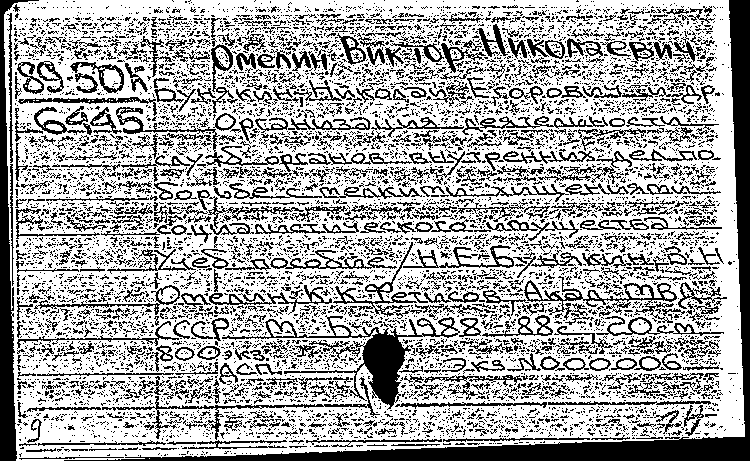 Омелин, Виктор Николаевич
89-50к
6445
Бунякин, Николай Егорович и др.
Организация деятельности
служб органов внутренних дел по
борьбе с мелкими хищениями
социалистического имущества:
Учеб. пособие / Н.Е. Бунякин, В.Н.
Омелин, К.К. Фетисов; Акад. МВД
СССР. - М. Б.и., 1988. - 88с.; 20см.
800 экз.
ДСП. Экз. N 000006
9